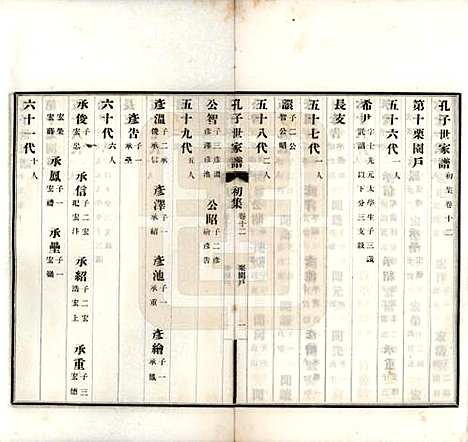 孔子世家譜 初集卷十二
第十栗園戶
五十六代 一人
希尹 字士先元太學生子三
長支
五十七代 一人
子二公智公昭
五十八代 二人
孔子世家譜 初集 卷十二 栗園戶 一
公智 子三彥溫彥澤彥池 公昭 子二彥繪彥告
五十九代 五人
彥溫 子二承俊承信 彥澤 子一承紹 彥池 子一承重 彥繪 子一承鳳
彥告 子一承壘
六十代 六人
承俊 承信 承紹 承重 子三宏德
宏榮 承鳳 子一宏禮 承壘 子一
六十一代 十人